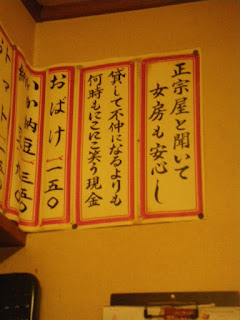 正宗屋と聞いて
女房も安心し
貸して不仲になるよりも
何時もにこにこ笑う現金
おばけ 一五〇
いか納豆 三五〇
トマト